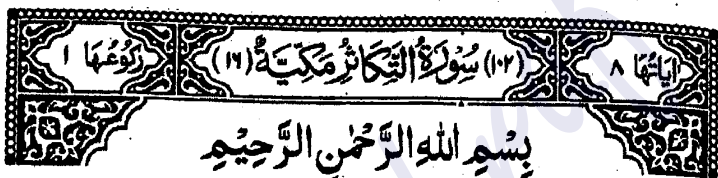 اٰیَاتُهَا ٨ (١٠٢) سُوْرَةُ التَّكَاثُرِ مَكِّیَّةٌ (١٦) رُكُوْعُهَا ١
بِسْمِ اللهِ الرَّحْمٰنِ الرَّحِیْمِ